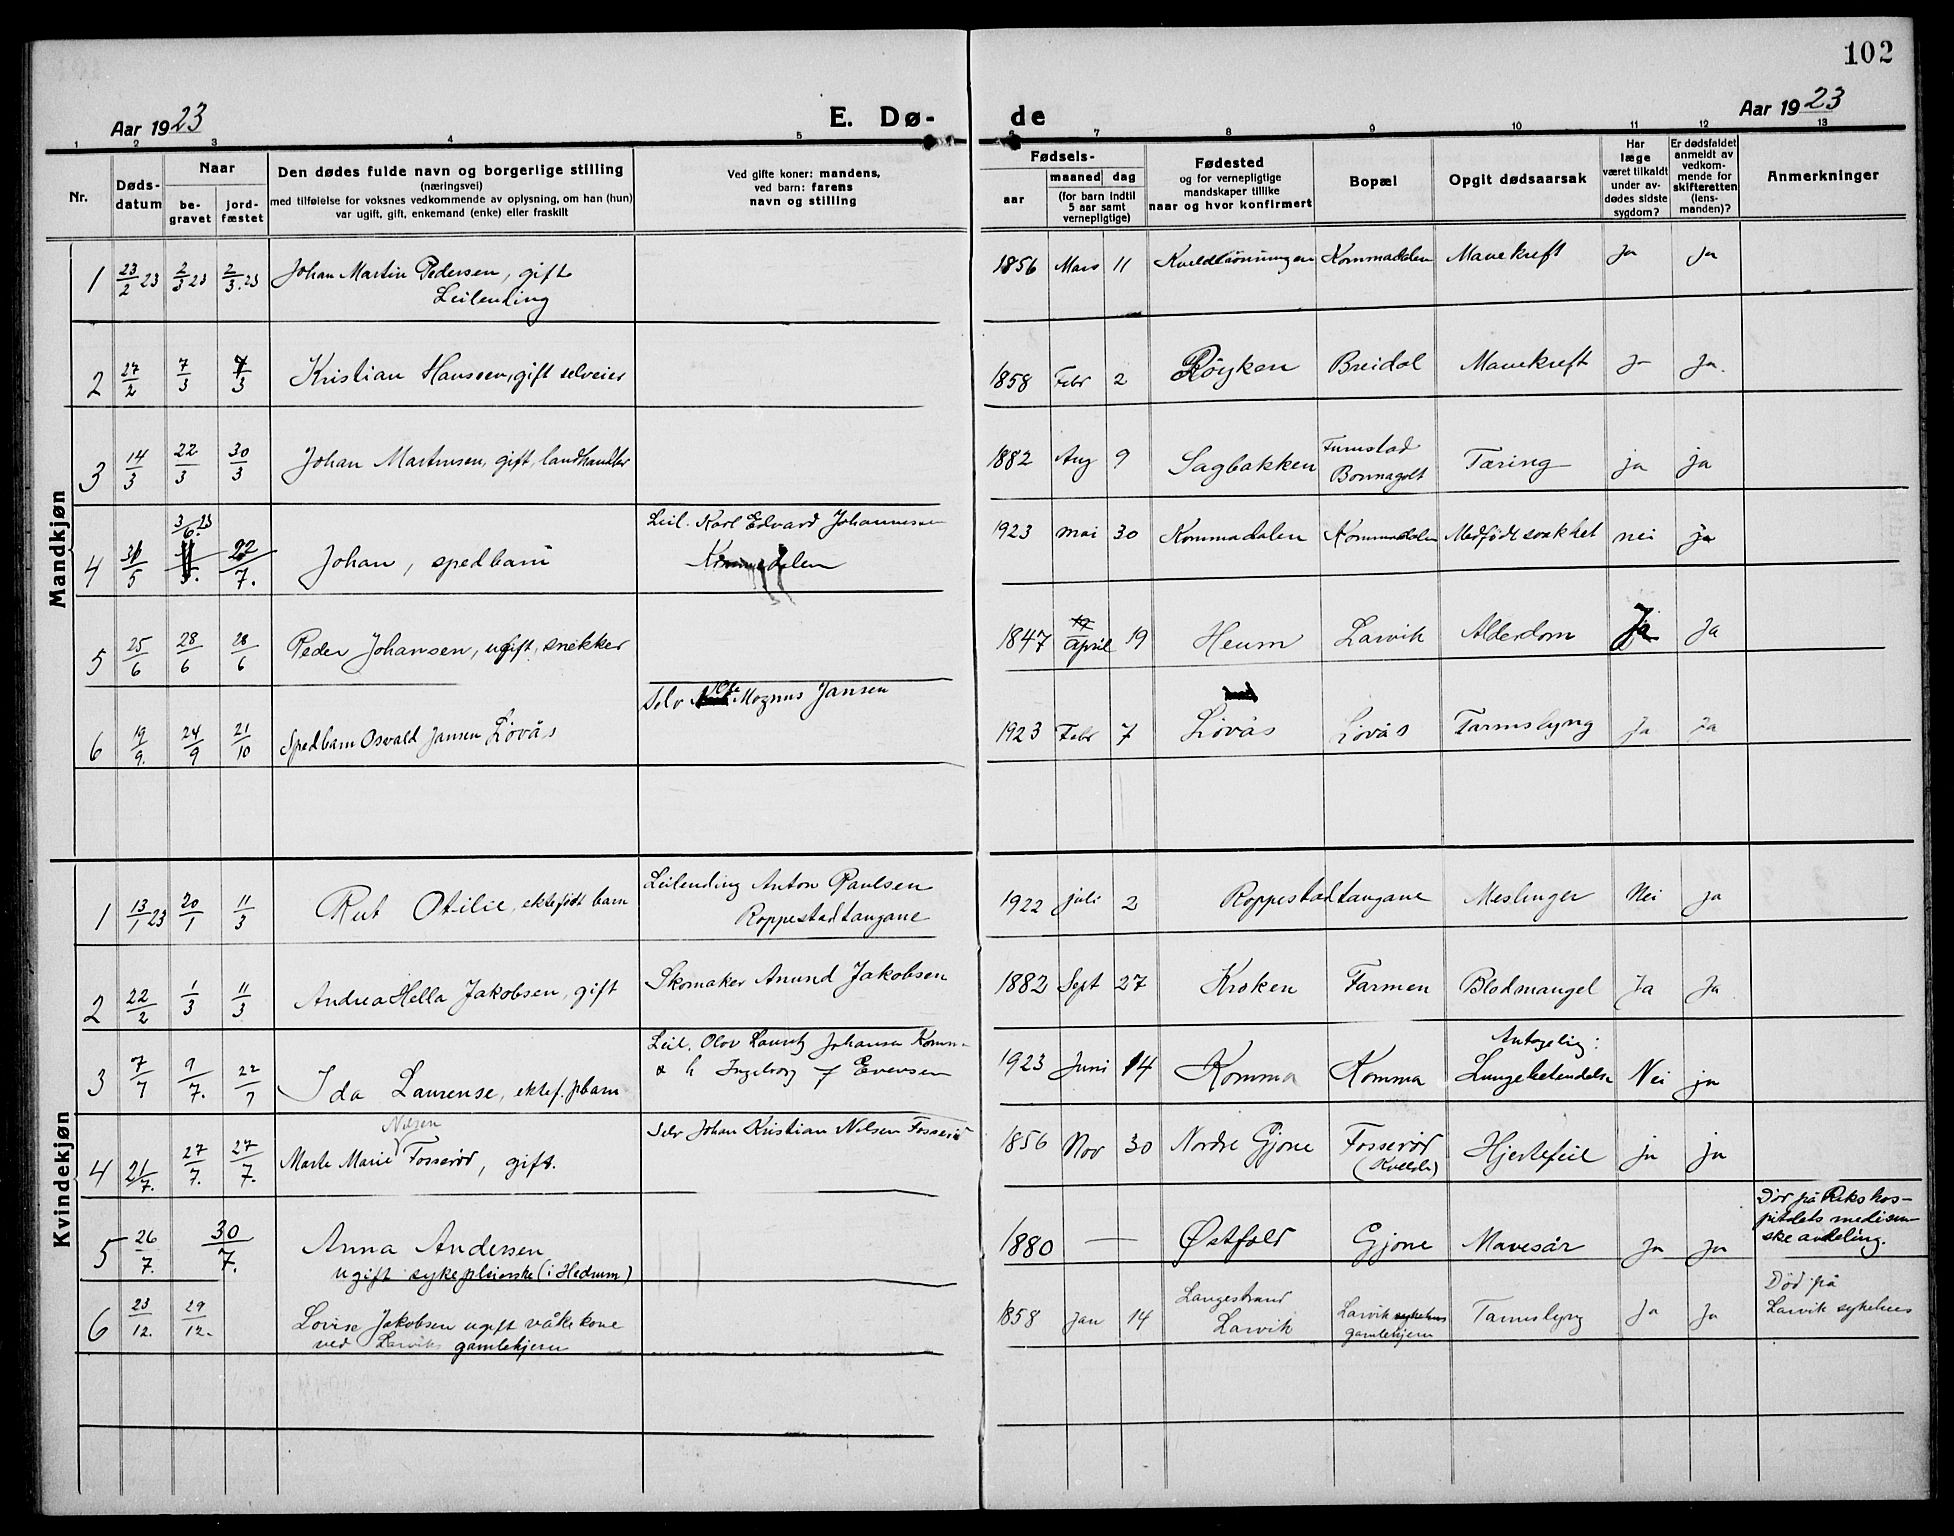 102
Aar 1923 E. Dø- de Aar 1923
1 2 3 4 5 6 7 8 9 10 11 12 13
Nr. Døds-datum Naar be-gravet jord-fæstet
Den dødes fulde navn og borgerlige stilling
(næringsvei)
med tilføielse for voksnes vedkommende av oplysning, om han (hun)
var ugift, gift, enkemand (enke) eller fraskilt
Ved gifte koner: mandens,
ved barn: farens
navn og stilling
Fødsels-
aar maaned dag
(for barn indtil
5 aar samt
vernepligtige)
Fødested
og for vernepligtige
mandskaper tillike
naar og hvor konfirmert
Bopæl
Opgit dødsaarsak
Har
læge
været tilkaldt
under av-
dødes sidste
sygdom?
Er dødsfaldet
anmeldt av
vedkom-
mende for
skifteretten
(lens-
manden)?
Anmerkninger
Mandkjøn
1 23/2 23 2/3 23 2/3.23 Johan Martin Pedersen, gift 1856 Mars 11 Kommedalen Mavekreft Ja Ja
Leilending
2 27/2 7/3 7/3 Kristian Hansen, gift selveier 1858 Febr 2 Røyken Breidal Mavekreft J- Ja.
3 14/3 22/3 30/3 Johan Martinsen, gift, landhandler 1882 Aug 9 Sagbakken Furustad Tæring ja ja
3/6.23 Leil. Karl Edvard Johannessen
4 31/5 22/7. Johan, spedbarn Kommedalen 1923 mai 30 Kommadalen Kommadalen Medfødt svakhet nei ja
5 25/6 28/6 28/6 Peder Johansen, ugift, snekker 1847 April 19 Heum Larvik Alderdom Ja Ja
Selv Magnus Jansen
6 19/9. 24/9 21/10 Spedbarn Osvald Jansen Løvås 1923 Febr 7 Løvås Løvås Tarmslyng Ja Ja
Kvindekjøn
Leilending Anton Paulsen
1 13/1 23 20/1 11/3 Rut Otilie, ektefødt barn Roppestadtangane 1922 juli 2 Roppestadtangane Meslinger Nei ja
2 22/2 1/3 11/3 Andrea Hella Jakobsen, gift Skomaker Anund Jakobsen 1882 Sept 27 Kroken Farmen Blodmangel Ja Ja
Leil. Olav Lauritz Johansen Komma
Antagelig:
3 7/7 9/7. 22/7 Ida Laurense, ektef. pbarn & h Ingeborg f Evensen 1923 Juni 14 Komma Komma Lungebetendelse Nei ja
Nilsen
4 21/7. 27/7. 27/7. Marte Marie Fosserød, gift. Selv Johan Kristian Nilsen Fosserød 1856 Nov 30 Nordre Gjone Fosserød Hjertefeil ja ja
(Kvelde)
5 26/7. 30/7. Anna Andersen 1880 — Østfold Gjone Mavesår Ja Ja Dør på Rikshos-
pitalets medisin-
ske avdeling.
ugift sykepleierske (i Hedrum)
6 23/12. 29/12. Lovise Jakobsen ugift våkekone 1858 Jan 14 Langestrand Larvik sykehus Tarmslyng Ja Ja Død på
ved Larviks gamlehjem Larvik gamlehjem Larvik sykehus